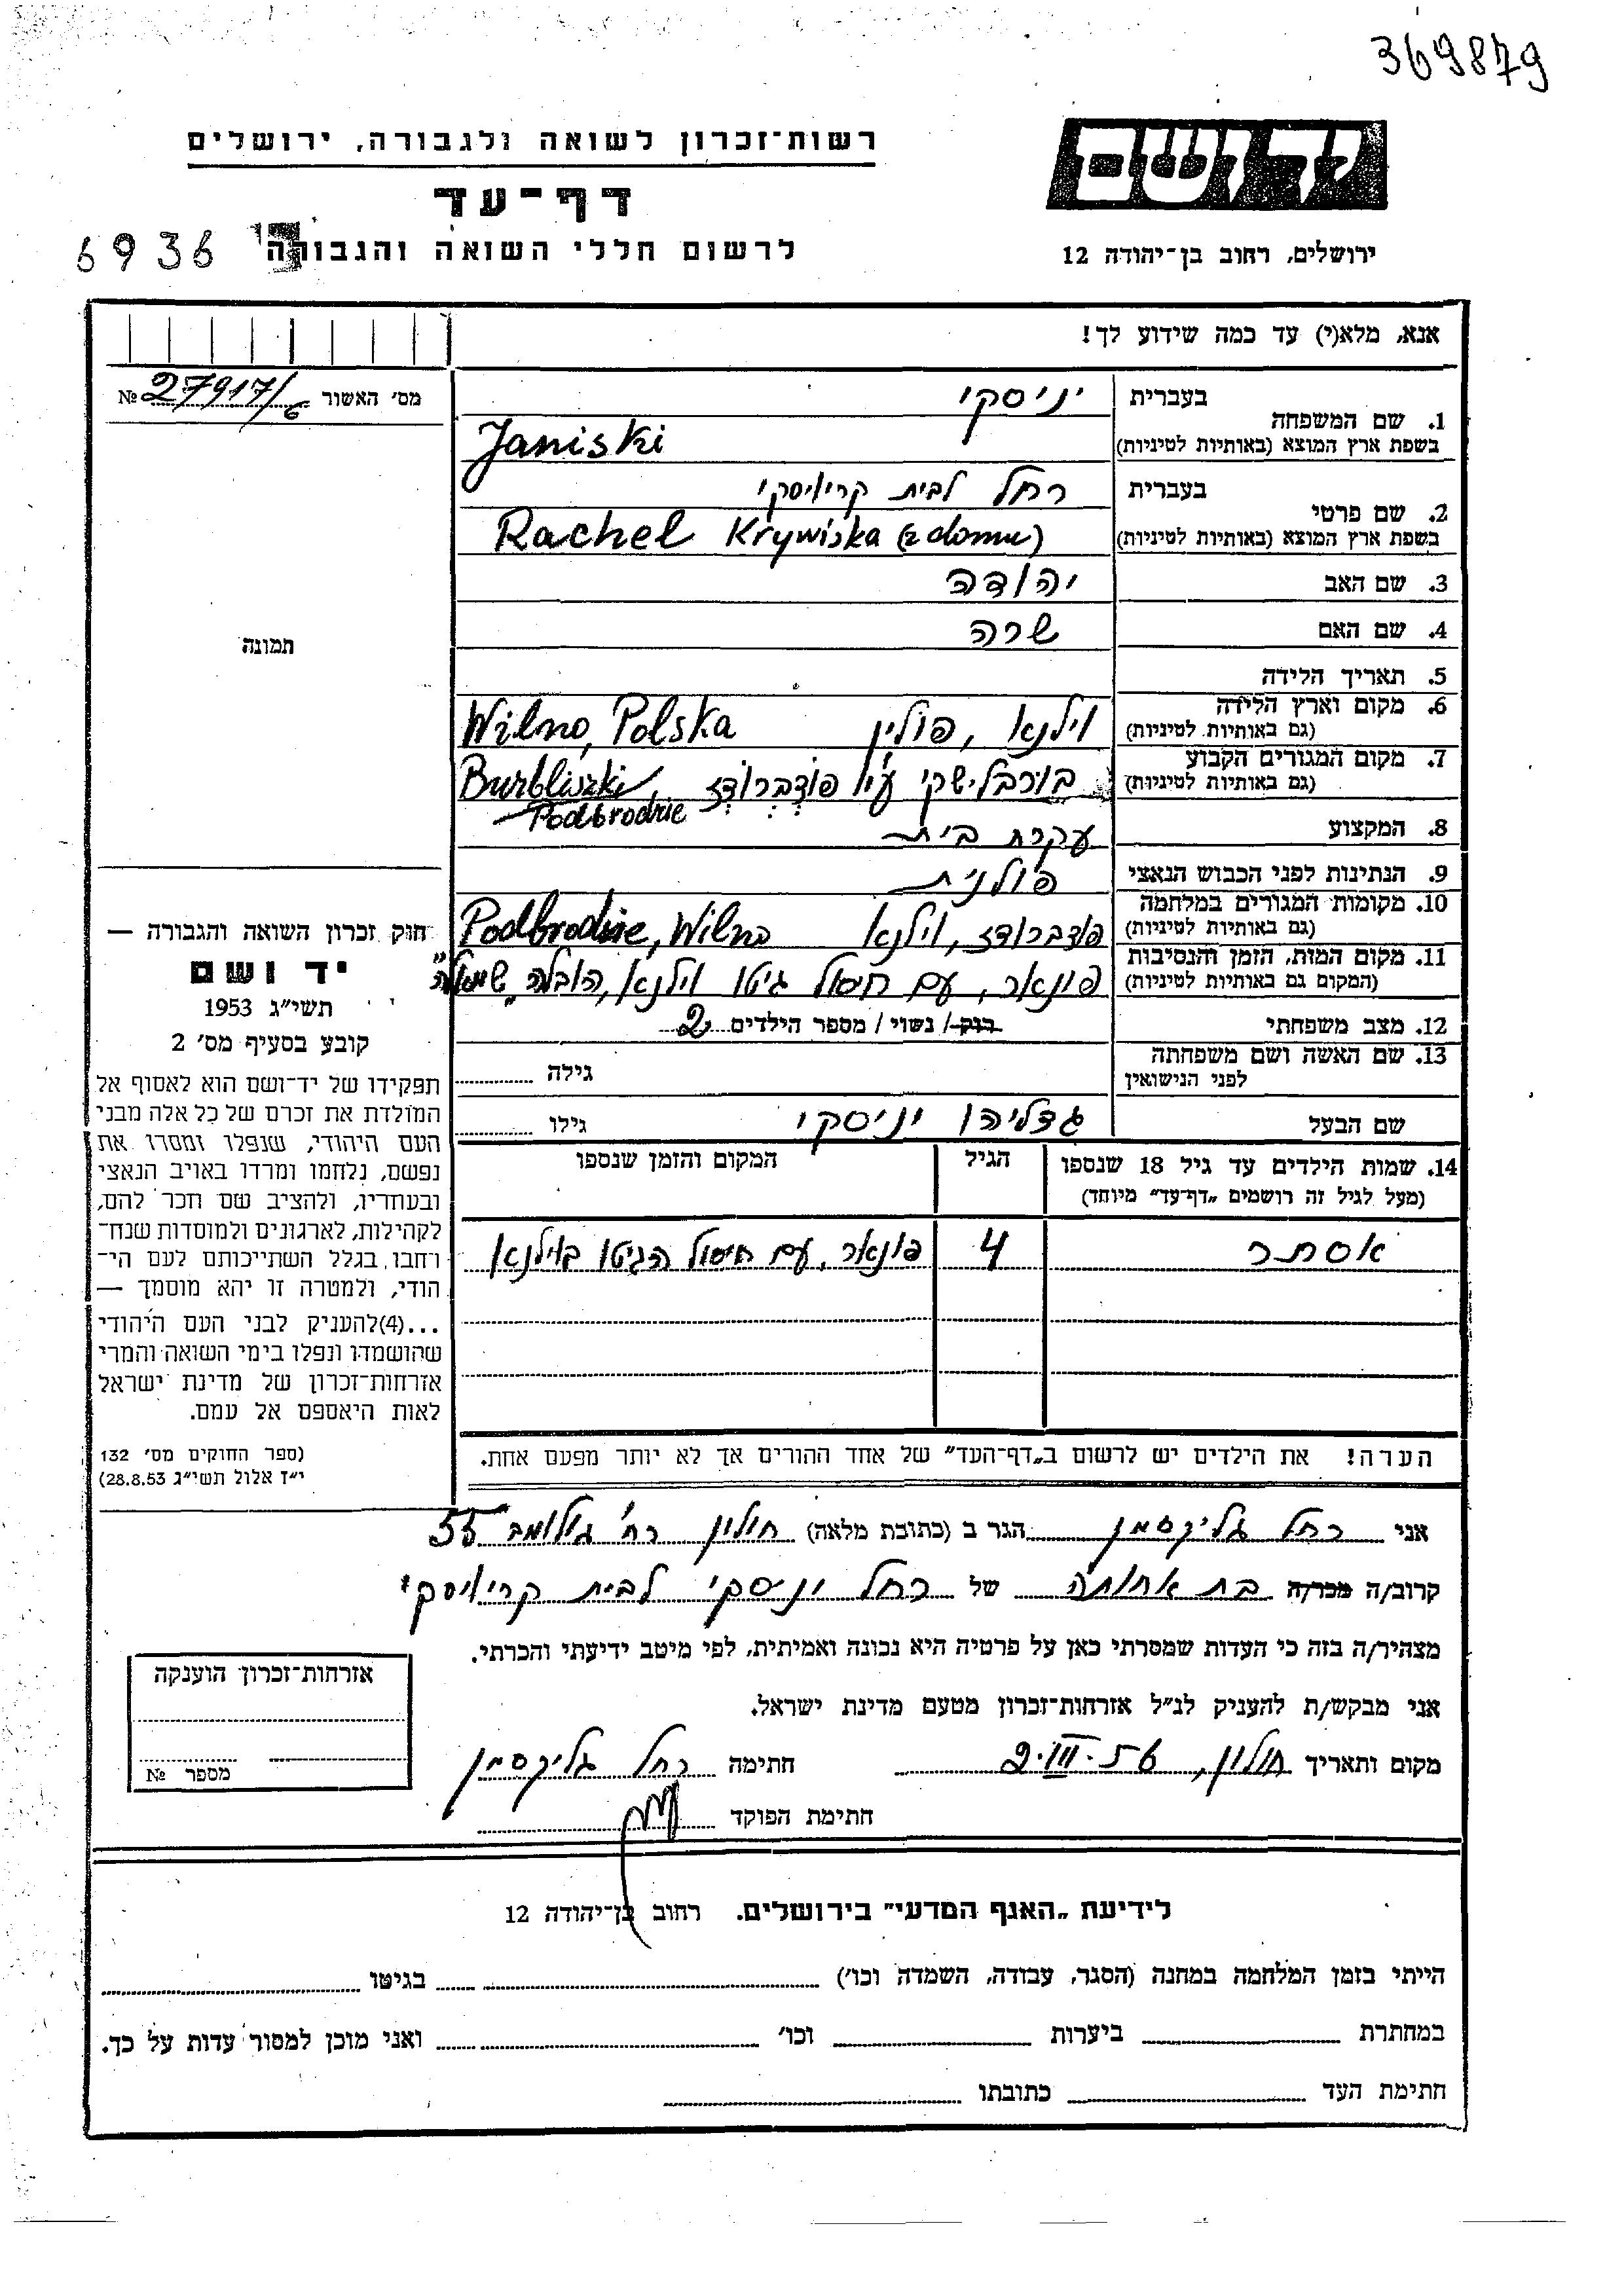 369879
יד ושם
רשות־זכרון לשואה ולגבורה, ירושלים
דף־עד
לרשום חללי השואה והגבורה
6936
ירושלים, רחוב בן־יהודה 12
אנא, מלא(י) עד כמה שידוע לך!
מס׳ האשור № 27917/6
1. שם המשפחה
בעברית יניסקי
בשפת ארץ המוצא (באותיות לטיניות) Janiski
2. שם פרטי
בעברית רחל לבית קריויסקי
בשפת ארץ המוצא (באותיות לטיניות) Rachel Krywiska (z domu)
3. שם האב יהודה
4. שם האם שרה
5. תאריך הלידה
6. מקום וארץ הלידה (גם באותיות לטיניות) וילנא, פולין Wilno, Polska
7. מקום המגורים הקבוע (גם באותיות לטיניות) בורבלישקי ע"י פודברודז Burbliszki, Podbrodzie
8. המקצוע עקרת בית
9. הנתינות לפני הכבוש הנאצי פולנית
10. מקומות המגורים במלחמה (גם באותיות לטיניות) פודברודז, וילנא Podbrodzie, Wilno
11. מקום המות, הזמן והנסיבות (המקום גם באותיות לטיניות) פונאר, עם חיסול גיטו וילנא, הובלה
12. מצב משפחתי רווק / נשוי / מספר הילדים 2
13. שם האשה ושם משפחתה לפני הנישואין
גילה
שם הבעל גדליהו יניסקי גילו
14. שמות הילדים עד גיל 18 שנספו (מעל לגיל זה רושמים „דף־עד״ מיוחד)
הגיל
המקום והזמן שנספו
אסתר 4 פונאר, עם חיסול הגיטו בוילנא
הערה! את הילדים יש לרשום ב„דף־העד״ של אחד ההורים אך לא יותר מפעם אחת.
תמונה
חוק זכרון השואה והגבורה —
יד ושם
תשי״ג 1953
קובע בסעיף מס׳ 2
תפקידו של יד־ושם הוא לאסוף אל
המולדת את זכרם של כל אלה מבני
העם היהודי, שנפלו ומסרו את
נפשם, נלחמו ומרדו באויב הנאצי
ובעוזריו, ולהציב שם וזכר להם,
לקהילות, לארגונים ולמוסדות שנח־
רחבו בגלל השתייכותם לעם הי־
הודי, ולמטרה זו יהא מוסמך —
...(4)להעניק לבני העם היהודי
שהושמדו ונפלו בימי השואה והמרי
אזרחות־זכרון של מדינת ישראל
לאות היאספם אל עמם.
(ספר החוקים מס׳ 132
י״ז אלול תשי״ג 28.8.53)
אני רחל גליקסמן הגר ב (כתובת מלאה) חולון רח' גולומב 55
קרוב/ה מכר/ה בת אחותה של רחל יניסקי לבית קריויסקי
מצהיר/ה בזה כי העדות שמסרתי כאן על פרטיה היא נכונה ואמיתית, לפי מיטב ידיעתי והכרתי.
אני מבקש/ת להעניק לנ״ל אזרחות־זכרון מטעם מדינת ישראל.
מקום ותאריך חולון, 9.III.56 חתימה רחל גליקסמן
חתימת הפוקד
אזרחות־זכרון הוענקה
מספר №
לידיעת „האגף המדעי״ בירושלים. רחוב בן־יהודה 12
הייתי בזמן המלחמה במחנה (הסגר, עבודה, השמדה וכו׳) בגיטו
במחתרת ביערות וכו׳ ואני מוכן למסור עדות על כך.
חתימת העד כתובתו